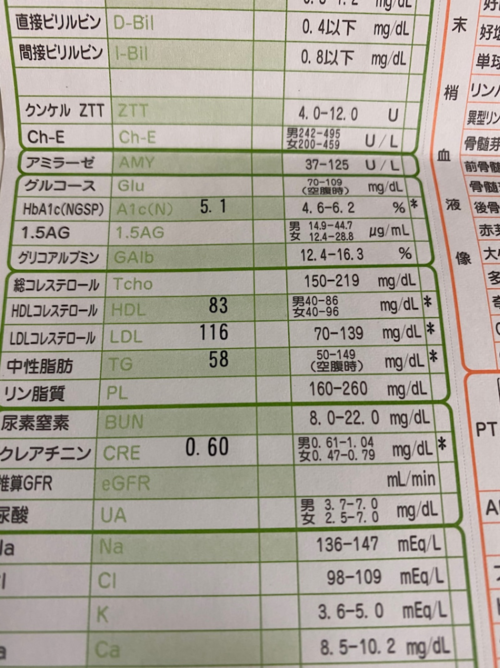 mg/dL
直接ビリルビン D-Bil 0.4以下 mg/dL
間接ビリルビン I-Bil 0.8以下 mg/dL
クンケル ZTT ZTT 4.0-12.0 U
Ch-E Ch-E 男242-495 女200-459 U/L
アミラーゼ AMY 37-125 U/L
グルコース Glu 70-109 (空腹時) mg/dL
HbA1c(NGSP) A1c(N) 5.1 4.6-6.2 % *
1.5AG 1.5AG 男 14.9-44.7 女 12.4-28.8 μg/mL
グリコアルブミン GAlb 12.4-16.3 %
総コレステロール Tcho 150-219 mg/dL
HDLコレステロール HDL 83 男40-86 女40-96 mg/dL *
LDLコレステロール LDL 116 70-139 mg/dL *
中性脂肪 TG 58 50-149 (空腹時) mg/dL *
リン脂質 PL 160-260 mg/dL
尿素窒素 BUN 8.0-22.0 mg/dL
クレアチニン CRE 0.60 男0.61-1.04 女0.47-0.79 mg/dL *
推算GFR eGFR mL/min
尿酸 UA 男 3.7-7.0 女 2.5-7.0 mg/dL
Na Na 136-147 mEq/L
Cl Cl 98-109 mEq/L
K 3.6-5.0 mEq/L
Ca Ca 8.5-10.2 mg/dL
末梢血液像
好塩
単球
リンパ
異型リン
骨髄芽
前骨髄
骨髄
後骨
赤芽
PT